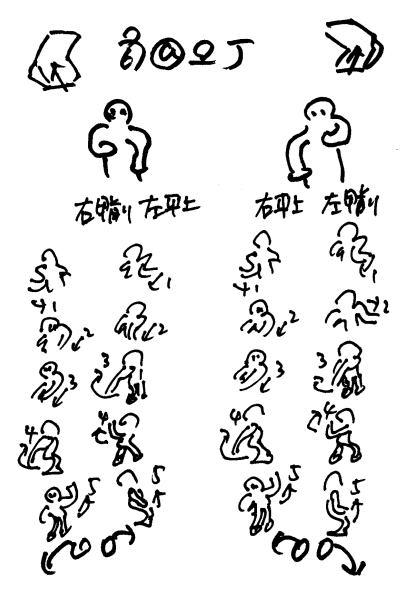 右甲削 左平上 右平上 左甲削
1 1 1 1
2 2 2 2
3 3 3 3
4 4 4 4
5 5 5 5